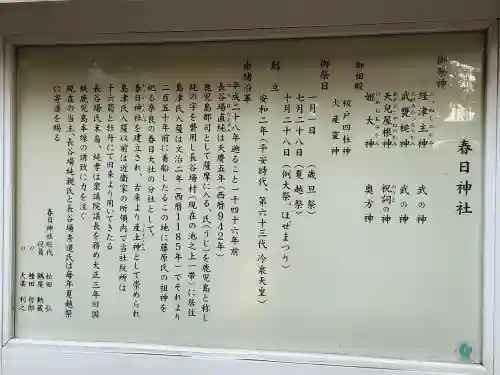 春日神社
御祭神
経津主神 武の神
武甕槌神 武の神
天兒屋根神 祝詞の神
姫大神 奥方神
御相殿
桜戸四柱神
火産霊神
御祭日
一月一日 （歳旦祭）
七月二十八日（夏越祭）
十月二十八日（例大祭、ほぜまつり）
創立
安和二年（平安時代、第六十三代 冷泉天皇）
由緒沿革
平成二十八年遡ること一千四十六年前
長谷場直純は天慶五年（西暦９４２年）
鹿児島郡司として薩摩に入る、氏（うじ）を鹿児島と称し
純の字を襲用し長谷場村（現在の池之上一帯）に居住
島津氏入薩は文治二年（西暦１１８５年）でそれより
二百五十年前に着船したるこの地に藤原氏の祖神を
祀る奈良の春日大社の分社として、
春日神社を建立され、古来より産土神として崇められ
島津氏入薩以前は近衛家の所領内で当社役所は
十六菊と牡丹にて旧来より用いてきたる
長谷場氏末裔、純孝は衆議院議長を務め大正三年旧国
鉄鹿児島本線の誘致に力を注ぐ
現在の当主、長谷場純親氏と長谷場秀道氏は毎年夏越祭
に寄進を賜う
春日神社総代 松田 弘
役員 鶴屋 勲蔵
〃 種田 哲郎
〃 大薬 利之